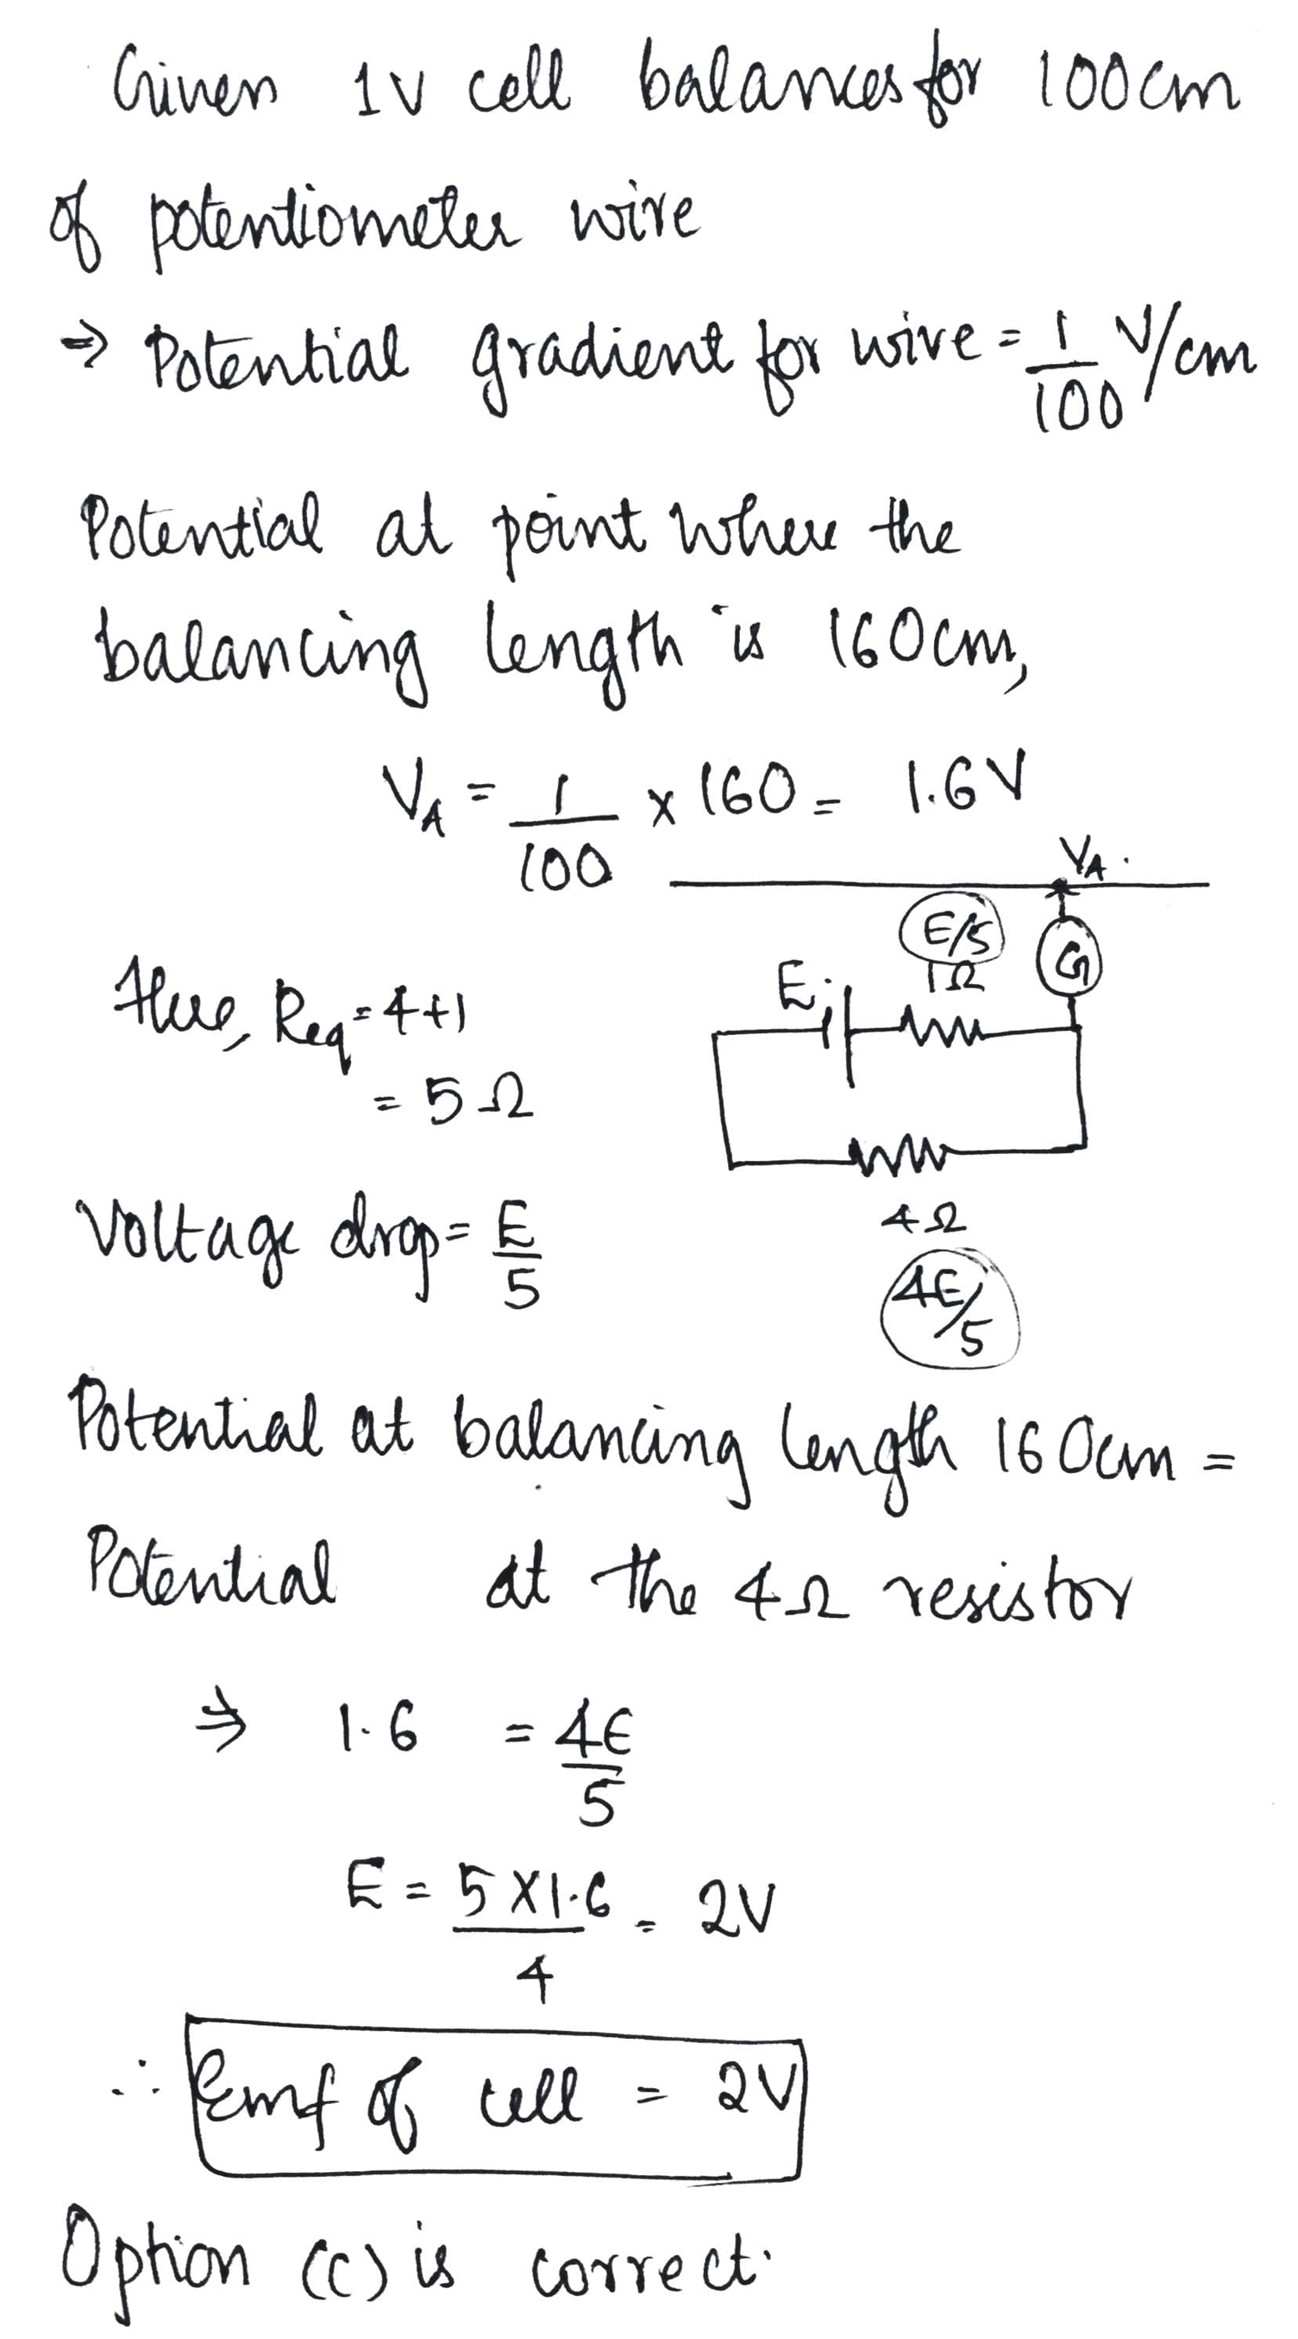 Given 1V cell balances for 100cm
of potentiometer wire
⇒ Potential gradient for wire = 1/100 V/cm
Potential at point where the
balancing length is 160cm,
V_A = 1/100 × 160 = 1.6V
V_A.
E/5
1Ω
G
E
Here, Req = 4+1
= 5Ω
4Ω
4E/5
Voltage drop = E/5
Potential at balancing length 160cm =
Potential at the 4Ω resistor
⇒ 1.6 = 4E/5
E = 5×1.6/4 = 2V
∴ Emf of cell = 2V
Option (c) is correct.